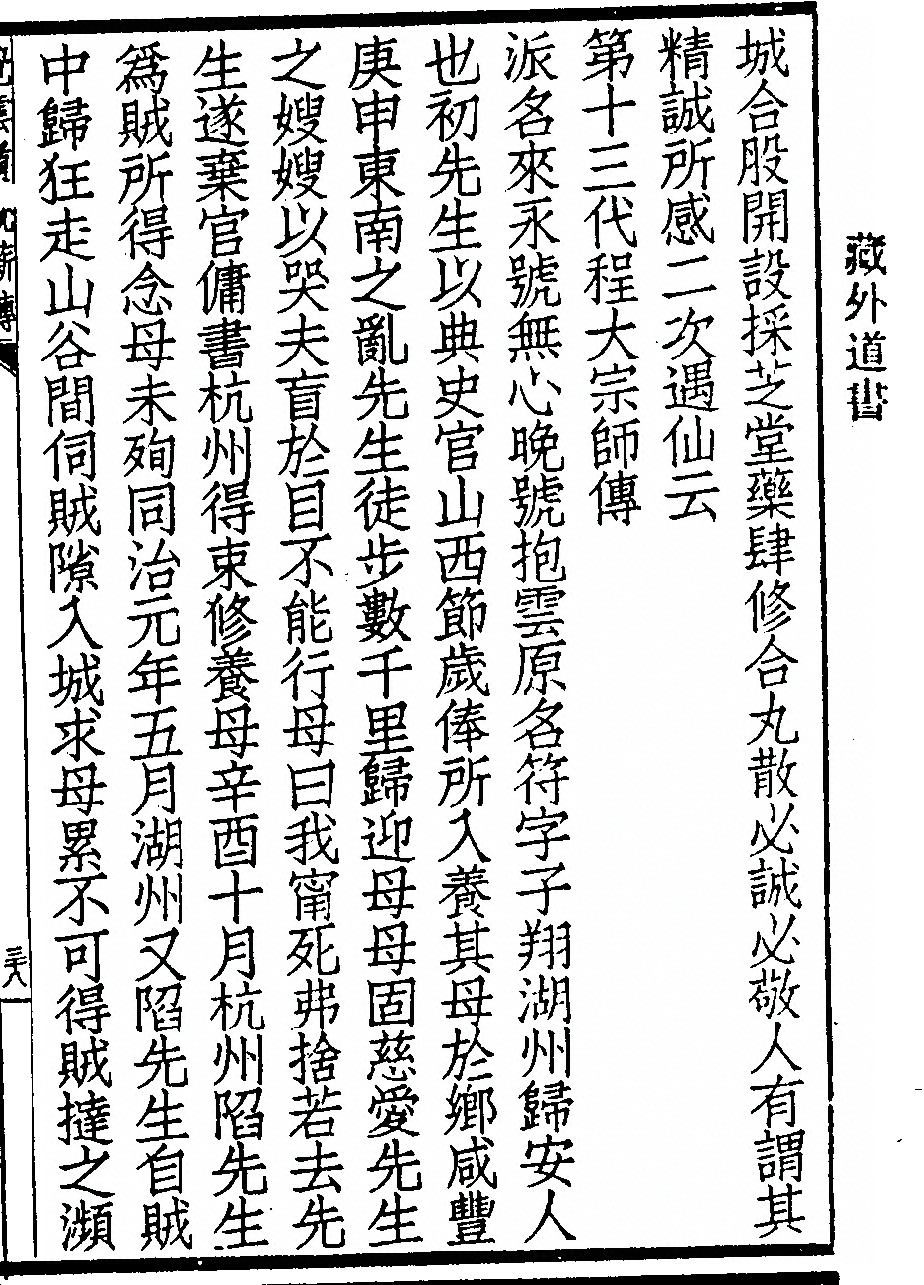 藏外道書
城合股開設採芝堂藥肆修合丸散必誠必敬人有謂其
精誠所感二次遇仙云
第十三代程大宗師傳
派名來永號無心晚號抱雲原名符字子翔湖州歸安人
也初先生以典史官山西節歲俸所入養其母於鄉咸豐
庚申東南之亂先生徒步數千里歸迎母母固慈愛先生
之嫂嫂以哭夫盲於目不能行母曰我甯死弗捨若去先
生遂棄官傭書杭州得束修養母辛酉十月杭州陷先生
為賊所得念母未殉同治元年五月湖州又陷先生自賊
中歸狂走山谷間伺賊隙入城求母累不可得賊撻之瀕
三八